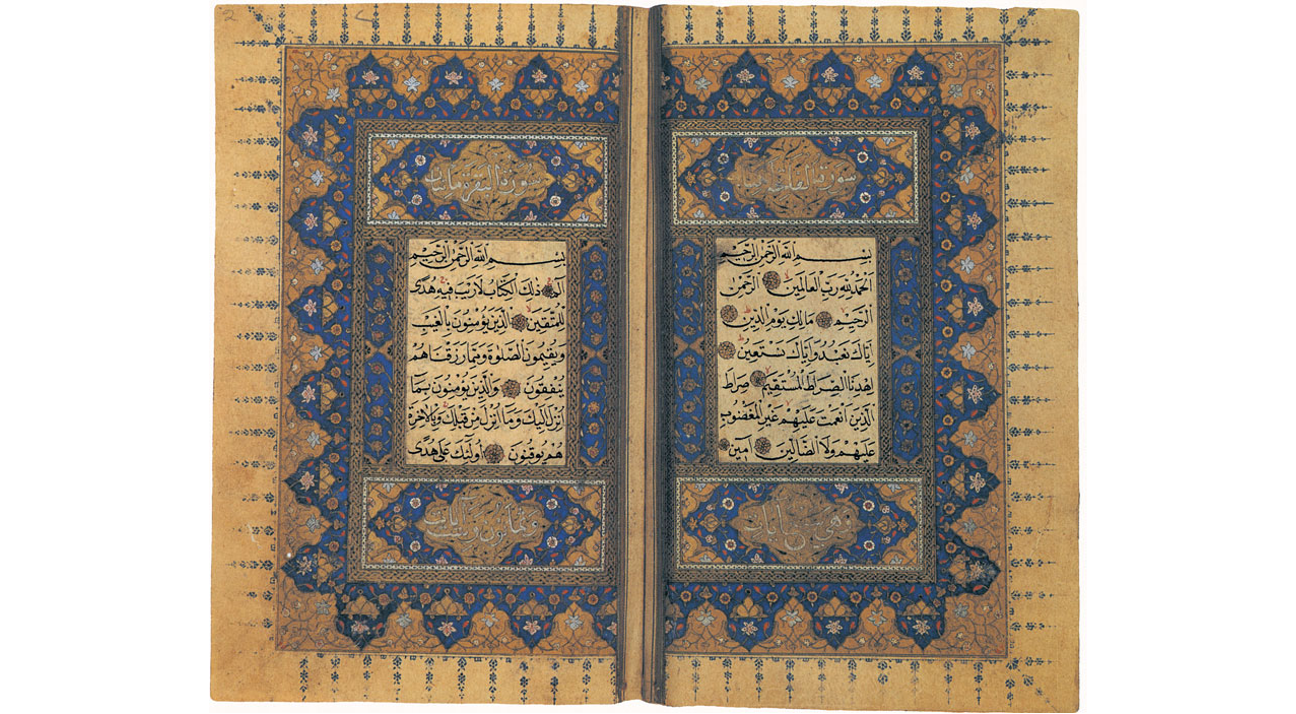 سورة الفاتحة
بِسْمِ اللَّهِ الرَّحْمٰنِ الرَّحِيمِ
اَلْحَمْدُ لِلَّهِ رَبِّ الْعَالَمِينَ الرَّحْمٰنِ
الرَّحِيمِ مَالِكِ يَوْمِ الدِّينِ
اِيَّاكَ نَعْبُدُ وَاِيَّاكَ نَسْتَعِينُ
اِهْدِنَا الصِّرَاطَ الْمُسْتَقِيمَ صِرَاطَ
الَّذِينَ اَنْعَمْتَ عَلَيْهِمْ غَيْرِ الْمَغْضُوبِ
عَلَيْهِمْ وَلَا الضَّالِّينَ آمِينَ
وهي سبع آيات
سورة البقرة مائتان
بِسْمِ اللَّهِ الرَّحْمٰنِ الرَّحِيمِ
الم ذٰلِكَ الْكِتَابُ لَا رَيْبَ فِيهِ هُدًى
لِلْمُتَّقِينَ اَلَّذِينَ يُؤْمِنُونَ بِالْغَيْبِ
وَيُقِيمُونَ الصَّلٰوةَ وَمِمَّا رَزَقْنَاهُمْ
يُنْفِقُونَ وَالَّذِينَ يُؤْمِنُونَ بِمَا
اُنْزِلَ اِلَيْكَ وَمَا اُنْزِلَ مِنْ قَبْلِكَ وَبِالْاٰخِرَةِ
هُمْ يُوقِنُونَ اُولٰئِكَ عَلٰى هُدًى
وثمانون وست آيات
2